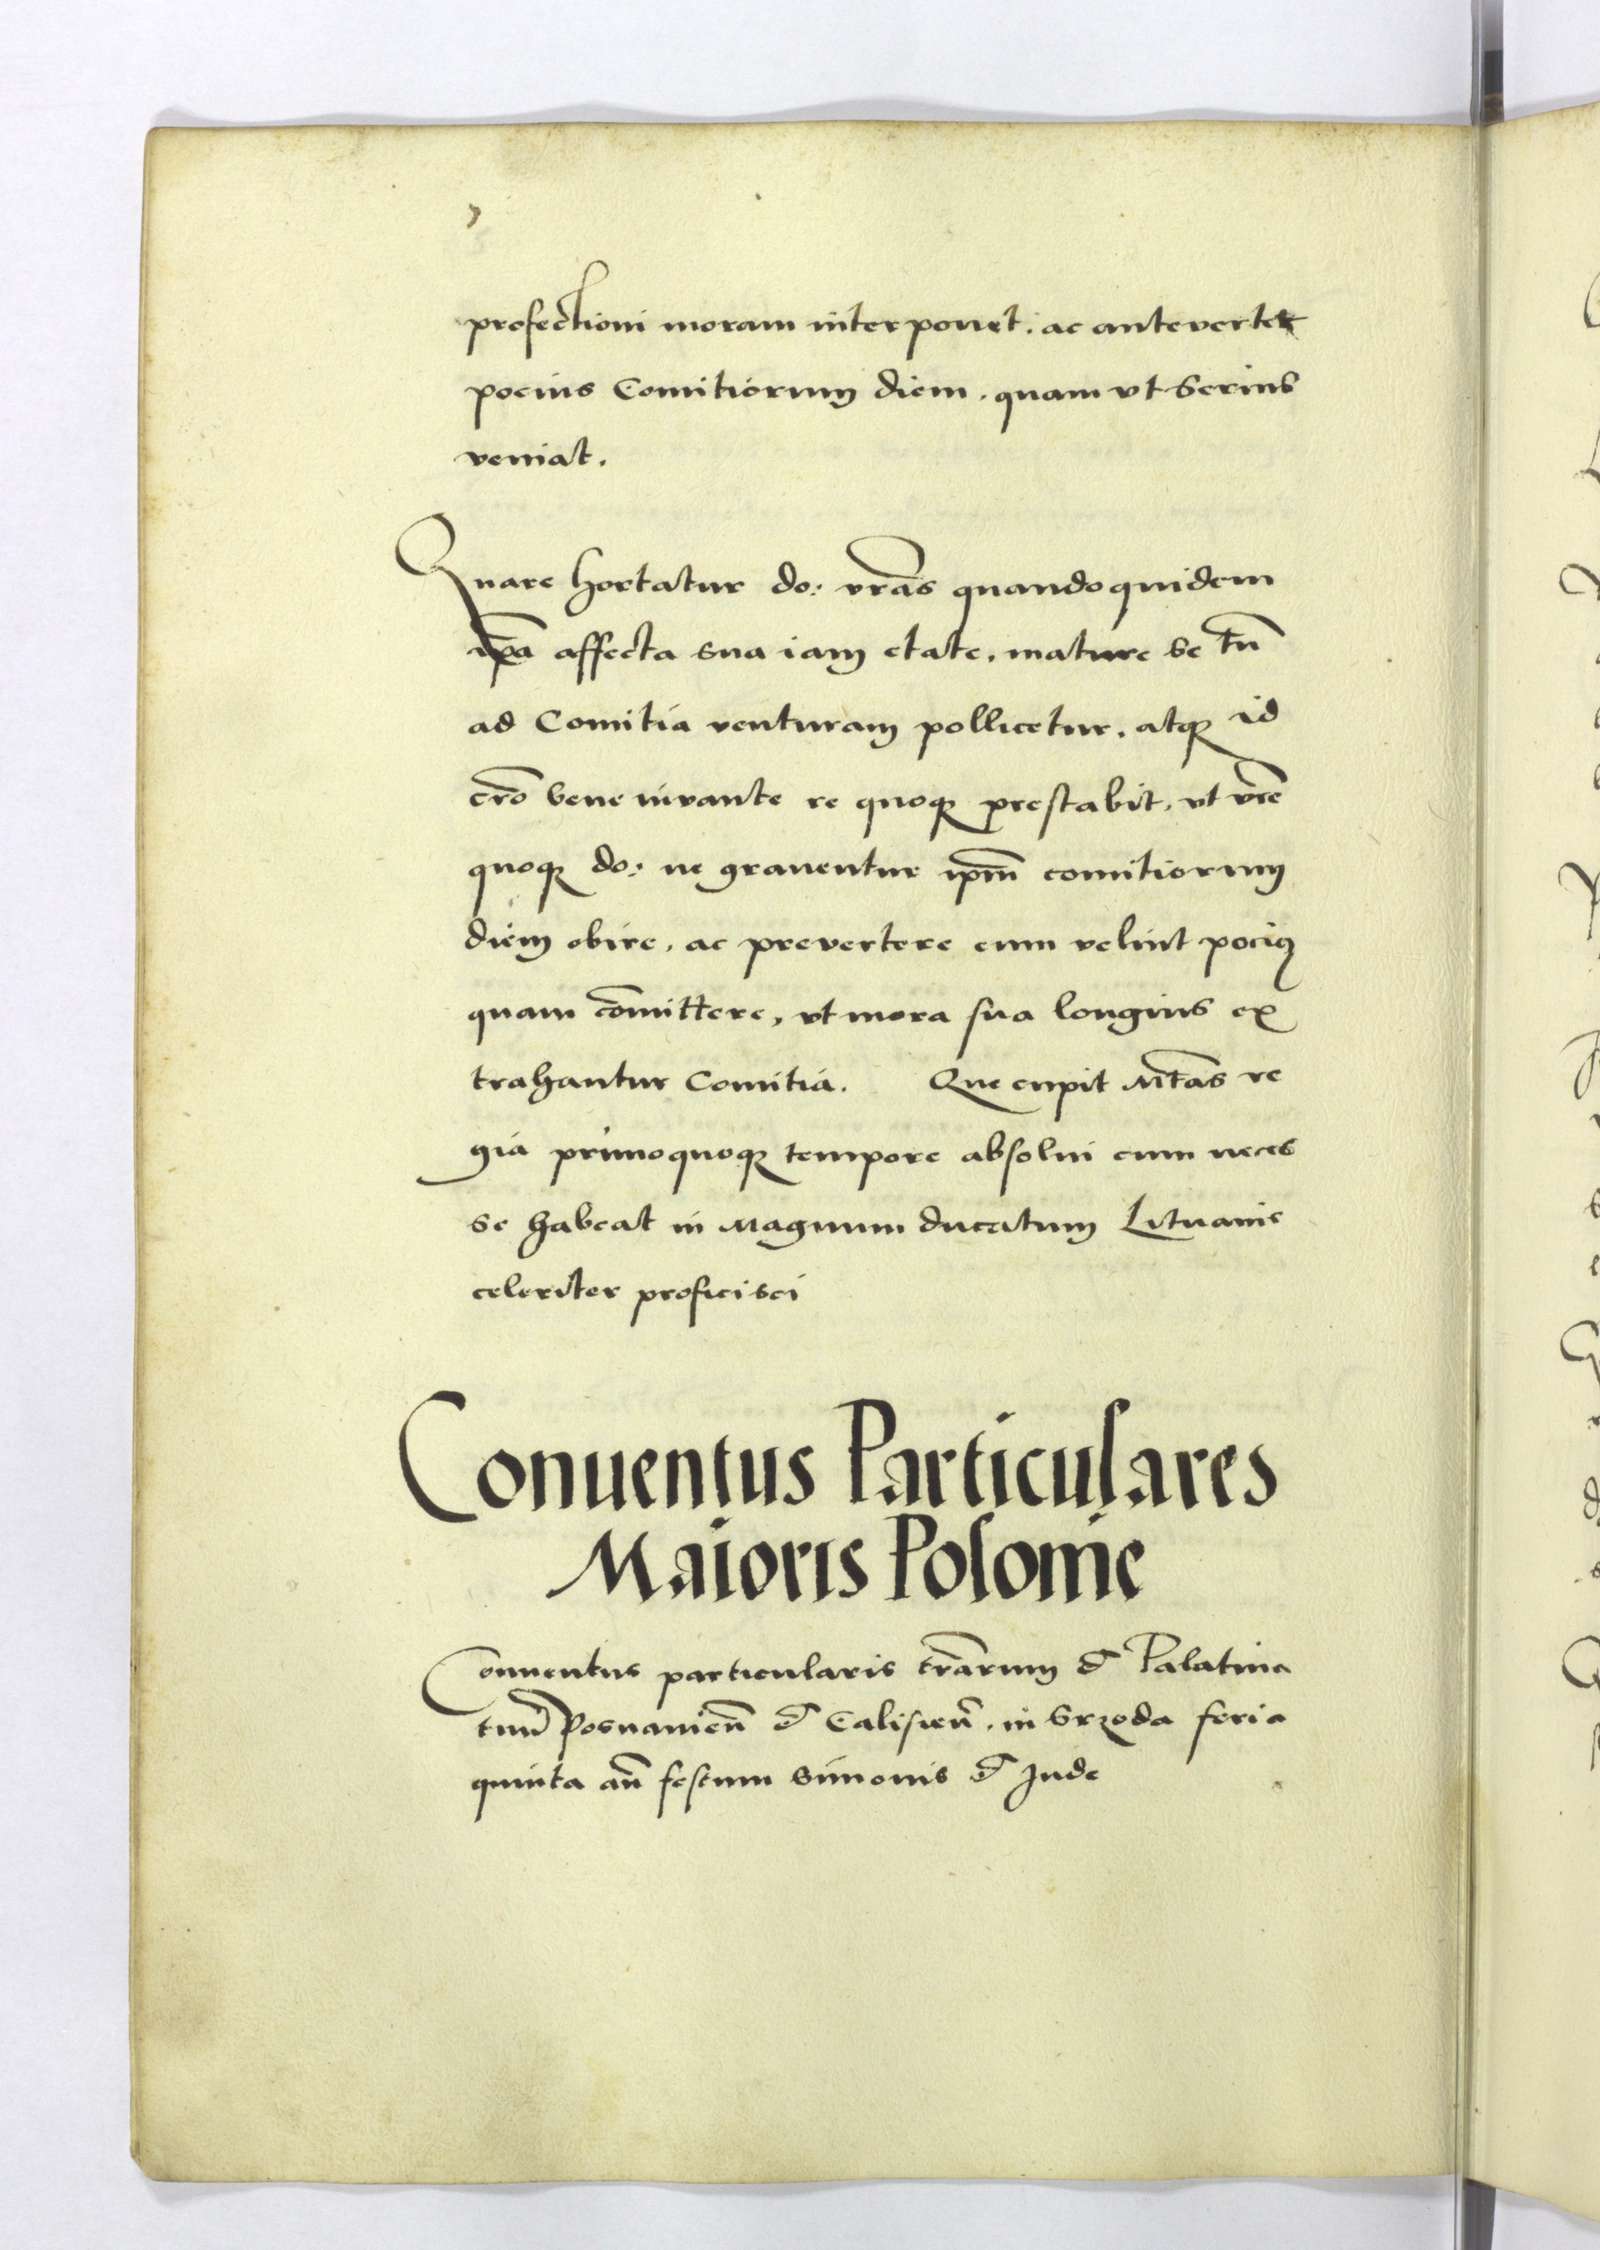 profectioni moram interponet. ac antevertet
pocius Comitiorum diem. quam vt serius
veniat.
Quare hortatur do: vras quandoquidem
ipa affecta sua iam etate. mature se tn
ad Comitia venturam pollicetur. atq id
cro bene iuvante re quoq prestabit. vt vre
quoq do: ne graventur ipm comitiorum
diem obire. ac prevertere eum velint pocius
quam comittere, vt mora sua longius ex
trahantur Comitia. Que cupit Mtas re
gia primoquoq tempore absolui cum neces
se habeat in Magnum ducatum Lituanie
celeriter proficisci
Conuentus Particulares
Maioris Polonie
Conuentus particularis trarum et Palatina
tuu Posnanien et Calisien. in Srzoda feria
quinta an festum Simonis et Jude